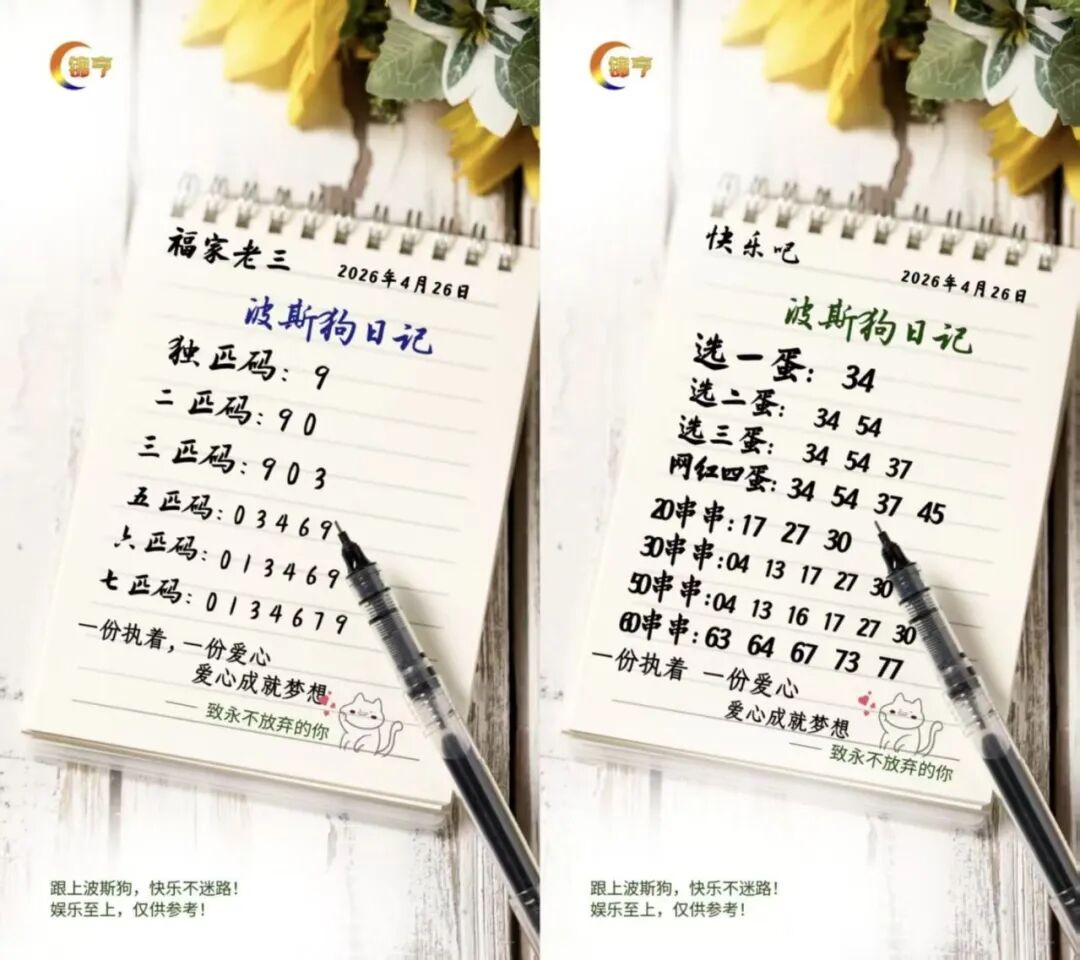 锦亨
福家老三
2026年4月26日
波斯狗日记
独匹码: 9
二匹码: 9 0
三匹码: 9 0 3
五匹码: 0 3 4 6 9
六匹码: 0 1 3 4 6 9
七匹码: 0 1 3 4 6 7 9
一份执着，一份爱心
爱心成就梦想
—— 致永不放弃的你
跟上波斯狗，快乐不迷路！
娱乐至上，仅供参考！
锦亨
快乐吧
2026年4月26日
波斯狗日记
选一蛋: 34
选二蛋: 34 54
选三蛋: 34 54 37
网红四蛋: 34 54 37 45
20串串: 17 27 30
30串串: 04 13 17 27 30
50串串: 04 13 16 17 27 30
60串串: 63 64 67 73 77
一份执着 一份爱心
爱心成就梦想
—— 致永不放弃的你
跟上波斯狗，快乐不迷路！
娱乐至上，仅供参考！